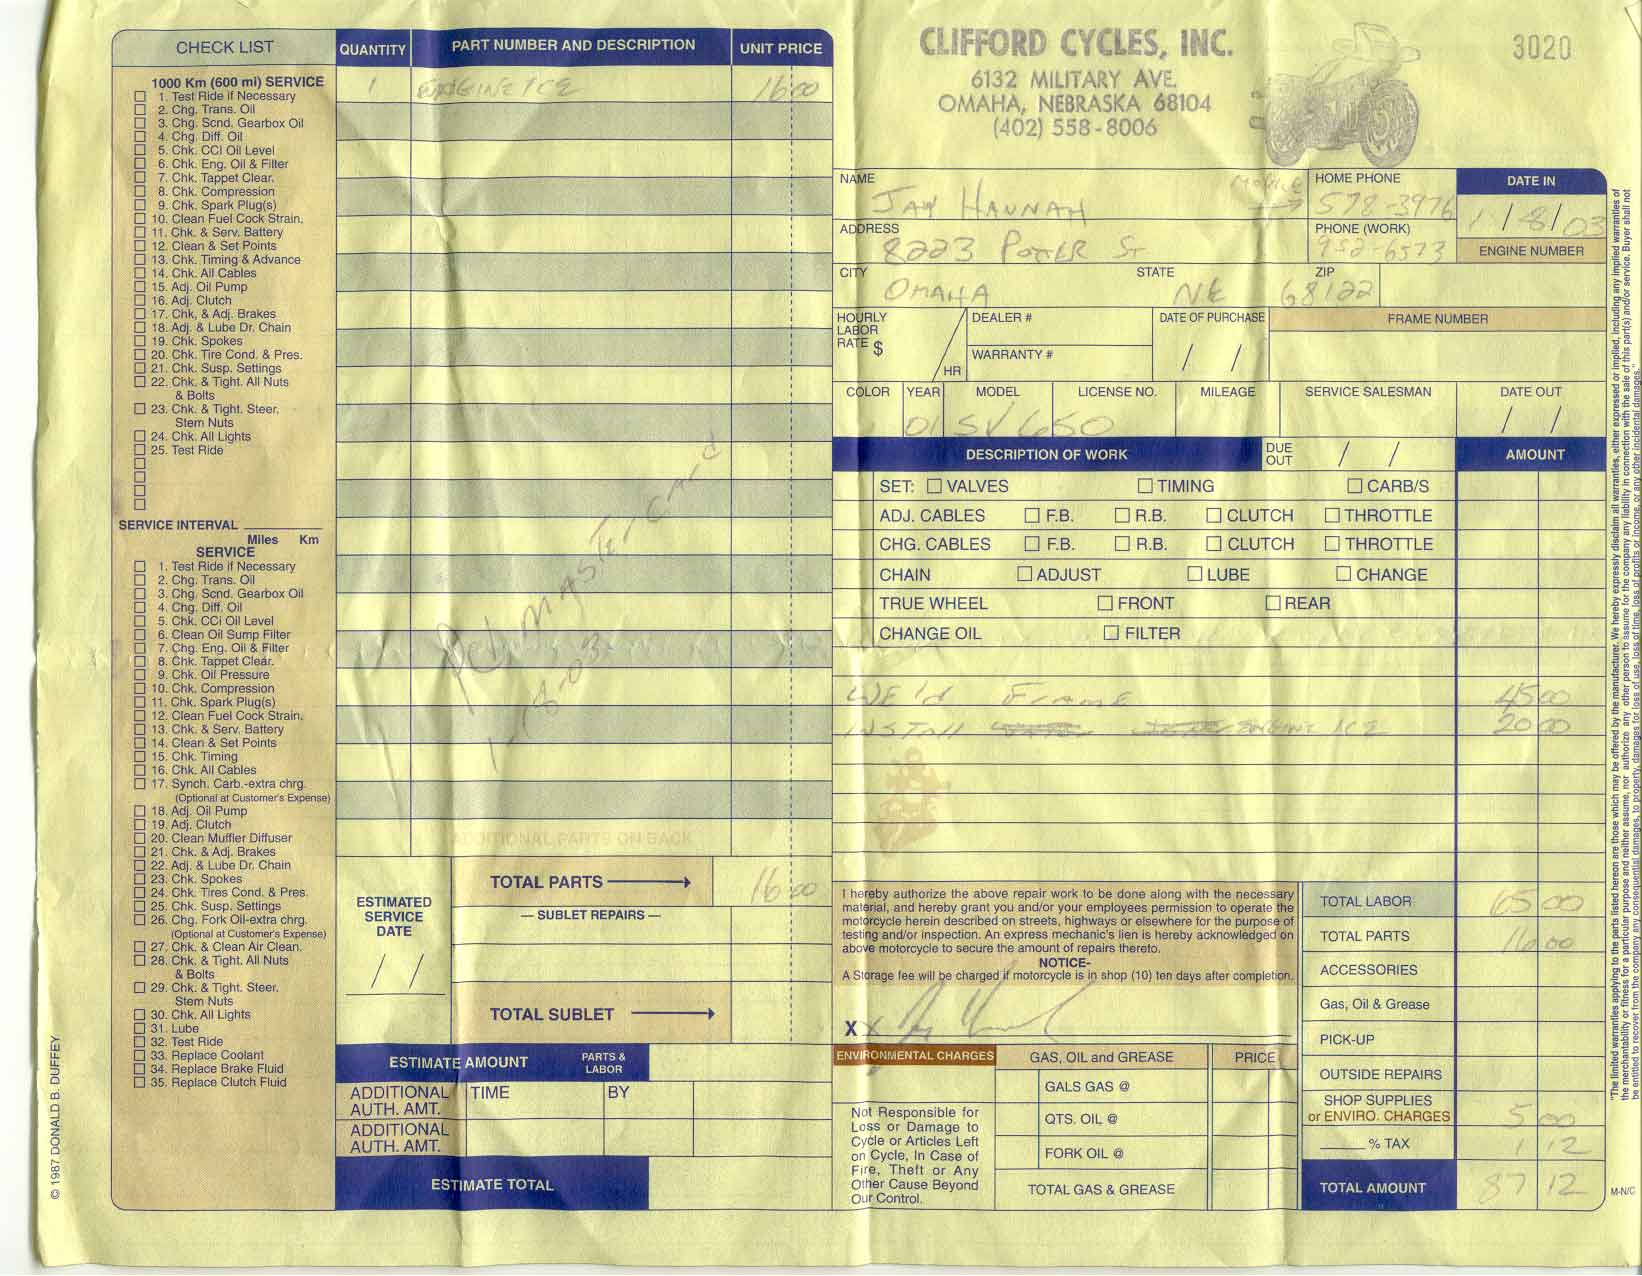 CLIFFORD CYCLES, INC.
6132 MILITARY AVE.
OMAHA, NEBRASKA 68104
(402) 558-8006
3020
CHECK LIST
1000 Km (600 mi) SERVICE
1. Test Ride if Necessary
2. Chg. Trans. Oil
3. Chg. Scnd. Gearbox Oil
4. Chg. Diff. Oil
5. Chk. CCI Oil Level
6. Chk. Eng. Oil & Filter
7. Chk. Tappet Clear.
8. Chk. Compression
9. Chk. Spark Plug(s)
10. Clean Fuel Cock Strain.
11. Chk. & Serv. Battery
12. Clean & Set Points
13. Chk. Timing & Advance
14. Chk. All Cables
15. Adj. Oil Pump
16. Adj. Clutch
17. Chk, & Adj. Brakes
18. Adj. & Lube Dr. Chain
19. Chk. Spokes
20. Chk. Tire Cond. & Pres.
21. Chk. Susp. Settings
22. Chk. & Tight. All Nuts
& Bolts
23. Chk. & Tight. Steer.
Stem Nuts
24. Chk. All Lights
25. Test Ride
SERVICE INTERVAL
Miles Km
SERVICE
1. Test Ride if Necessary
2. Chg. Trans. Oil
3. Chg. Scnd. Gearbox Oil
4. Chg. Diff. Oil
5. Chk. CCi Oil Level
6. Clean Oil Sump Filter
7. Chg. Eng. Oil & Filter
8. Chk. Tappet Clear.
9. Chk. Oil Pressure
10. Chk. Compression
11. Chk. Spark Plug(s)
12. Clean Fuel Cock Strain.
13. Chk. & Serv. Battery
14. Clean & Set Points
15. Chk. Timing
16. Chk. All Cables
17. Synch. Carb.-extra chrg.
(Optional at Customer's Expense)
18. Adj. Oil Pump
19. Adj. Clutch
20. Clean Muffler Diffuser
21. Chk. & Adj. Brakes
22. Adj. & Lube Dr. Chain
23. Chk. Spokes
24. Chk. Tires Cond. & Pres.
25. Chk. Susp. Settings
26. Chg. Fork Oil-extra chrg.
(Optional at Customer's Expense)
27. Chk. & Clean Air Clean.
28. Chk. & Tight. All Nuts
& Bolts
29. Chk. & Tight. Steer.
Stem Nuts
30. Chk. All Lights
31. Lube
32. Test Ride
33. Replace Coolant
34. Replace Brake Fluid
35. Replace Clutch Fluid
© 1987 DONALD B. DUFFEY
QUANTITY PART NUMBER AND DESCRIPTION UNIT PRICE
1 ENGINE ICE 16 00
Pd. Mastercard
1-8-03
ADDITIONAL PARTS ON BACK
TOTAL PARTS 16 00
ESTIMATED
SERVICE
DATE
/ /
— SUBLET REPAIRS —
TOTAL SUBLET
ESTIMATE AMOUNT PARTS &
LABOR
ADDITIONAL
AUTH. AMT. TIME BY
ADDITIONAL
AUTH. AMT.
ESTIMATE TOTAL
NAME Jay Hannah
Mobile HOME PHONE 578-3976
DATE IN 1/8/03
ADDRESS 8223 Potter St
PHONE (WORK) 952-6573
ENGINE NUMBER
CITY Omaha STATE NE ZIP 68122
HOURLY
LABOR
RATE $ / HR
DEALER #
WARRANTY #
DATE OF PURCHASE / /
FRAME NUMBER
COLOR YEAR MODEL LICENSE NO. MILEAGE SERVICE SALESMAN DATE OUT
01 SV650 / /
DESCRIPTION OF WORK DUE
OUT / / AMOUNT
SET: VALVES TIMING CARB/S
ADJ. CABLES F.B. R.B. CLUTCH THROTTLE
CHG. CABLES F.B. R.B. CLUTCH THROTTLE
CHAIN ADJUST LUBE CHANGE
TRUE WHEEL FRONT REAR
CHANGE OIL FILTER
Weld Frame 45 00
Install Engine Ice 20 00
I hereby authorize the above repair work to be done along with the necessary
material, and hereby grant you and/or your employees permission to operate the
motorcycle herein described on streets, highways or elsewhere for the purpose of
testing and/or inspection. An express mechanic's lien is hereby acknowledged on
above motorcycle to secure the amount of repairs thereto.
NOTICE-
A Storage fee will be charged if motorcycle is in shop (10) ten days after completion.
X x
ENVIRONMENTAL CHARGES GAS, OIL and GREASE PRICE
GALS GAS @
QTS. OIL @
FORK OIL @
TOTAL GAS & GREASE
Not Responsible for
Loss or Damage to
Cycle or Articles Left
on Cycle, In Case of
Fire, Theft or Any
Other Cause Beyond
Our Control.
TOTAL LABOR 65 00
TOTAL PARTS 16 00
ACCESSORIES
Gas, Oil & Grease
PICK-UP
OUTSIDE REPAIRS
SHOP SUPPLIES
or ENVIRO. CHARGES 5 00
% TAX 1 12
TOTAL AMOUNT 87 12
M-N/C
"The limited warranties applying to the parts listed hereon are those which may be offered by the manufacturer. We hereby expressly disclaim all warranties, either expressed or implied, including any implied warranties of
the merchantability or fitness for a particular purpose and neither assume, nor authorize any other person to assume for the company any liability in connection with the sale of this part(s) and/or service. Buyer shall not
be entitled to recover from the company any consequential damages, to property, damages for loss of use, loss of time, loss of profits or income, or any other incidental damages."